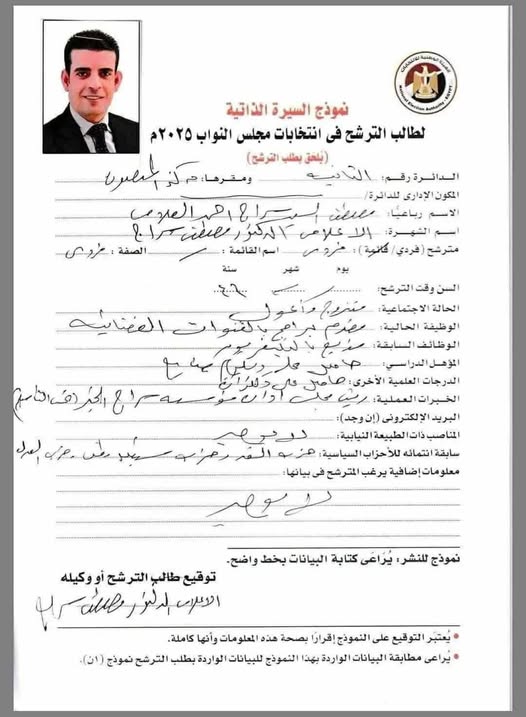 نموذج السيرة الذاتية
لطالب الترشح فى انتخابات مجلس النواب ٢٠٢٥م
(يُلحق بطلب الترشح)
الدائرة رقم: الثانية ومقرها: مركز المنصورة
المكون الإدارى للدائرة/
الاسم رباعيًا: مصطفى السيد سراج احمد
اسم الشهرة: الاعلامى الدكتور مصطفى سراج
مترشح (فردي/قائمة): فردى اسم القائمة: الصفة: فردى
يوم شهر سنة
السن وقت الترشح: ٤٦
الحالة الاجتماعية: متزوج وأعول
الوظيفة الحالية: مقدم برامج بالقنوات الفضائية
الوظائف السابقة: مذيع بالتليفزيون
المؤهل الدراسي: حاصل على دبلوم صنايع
الدرجات العلمية الأخرى: حاصل على دكتوراة
الخبرات العملية: رئيس مجلس ادارة مؤسسة سراج الخير
البريد الإلكترونى (إن وجد):
المناصب ذات الطبيعة النيابية: لا يوجد
سابقة انتمائه للأحزاب السياسية: حزب وحزب مستقبل وطن وحزب العدل
معلومات إضافية يرغب المترشح فى بيانها:
لا يوجد
نموذج للنشر: يُرَاعَى كتابة البيانات بخط واضح.
توقيع طالب الترشح أو وكيله
الاعلامى الدكتور مصطفى سراج
• يُعتبَر التوقيع على النموذج إقرارًا بصحة هذه المعلومات وأنها كاملة.
• يُراعى مطابقة البيانات الواردة بهذا النموذج للبيانات الواردة بطلب الترشح نموذج (١ن).